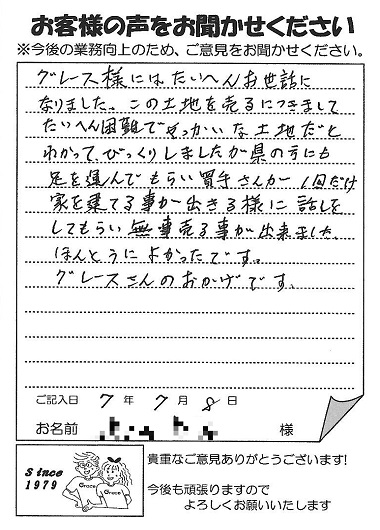 お客様の声をお聞かせください
※今後の業務向上のため、ご意見をお聞かせください。
グレース様にはたいへんお世話に
なりました。この土地を売るにつきまして
たいへん困難でやっかいな土地だと
わかって、びっくりしましたが県の方にも
足を運んでもらい買手さんが1回だけ
家を建てる事が出きる様に話しを
してもらい無事売る事が出来ました
ほんとうによかったです。
グレースさんのおかげです。
ご記入日 7年 7月 8日
お名前 様
貴重なご意見ありがとうございます!
Since
1979
Grace
Grace
今後も頑張りますので
よろしくお願いいたします